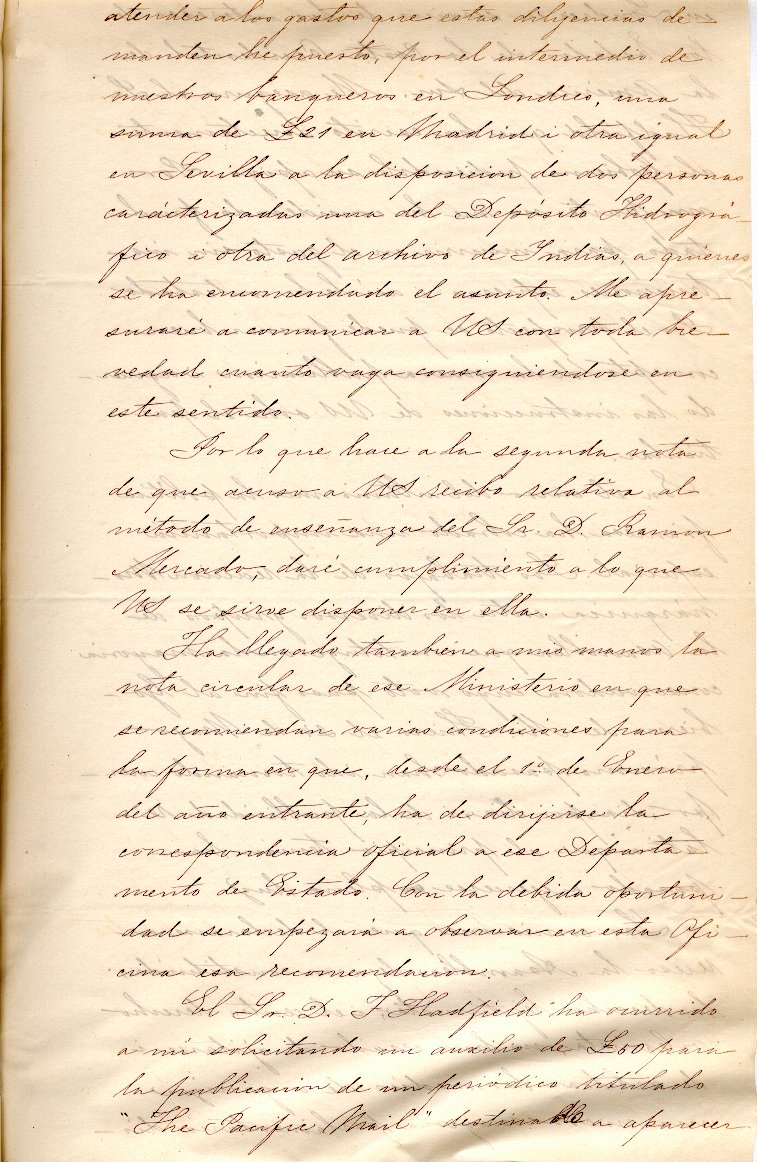 atender a los gastos que estas diligencias de-
manden he puesto, por el intermedio de
nuestros banqueros en Londres, una
suma de £21 en Madrid i otra igual
en Sevilla a la disposicion de dos personas
carácterizadas una del Depósito Hidrográ-
fico i otra del archivo de Indias, a quienes
se ha encomendado el asunto. Me apre-
suraré a comunicar a US con toda bre-
vedad cuanto vaya consiguiendose en
este sentido.
Por lo que hace a la segunda nota
de que acuso a US recibo relativa al
método de enseñanza del Sr. D. Ramon
Mercado, daré cumplimiento a lo que
US se sirve disponer en ella.
Ha llegado también a mis manos la
nota circular de ese Ministerio en que
se recomiendan varias condiciones para
la forma en que, desde el 1º de Enero
del año entrante, ha de dirijirse la
correspondencia oficial a ese Departa-
mento de Estado. Con la debida oportuni-
dad se empezará a observar en esta Ofi-
cina esa recomendación.
El Sr. D. F Hadfield ha ocurrido
a mi solicitando un auxilio de £50 para
la publicación de un periódico titulado
"The Pacific Mail" destinado a aparecer